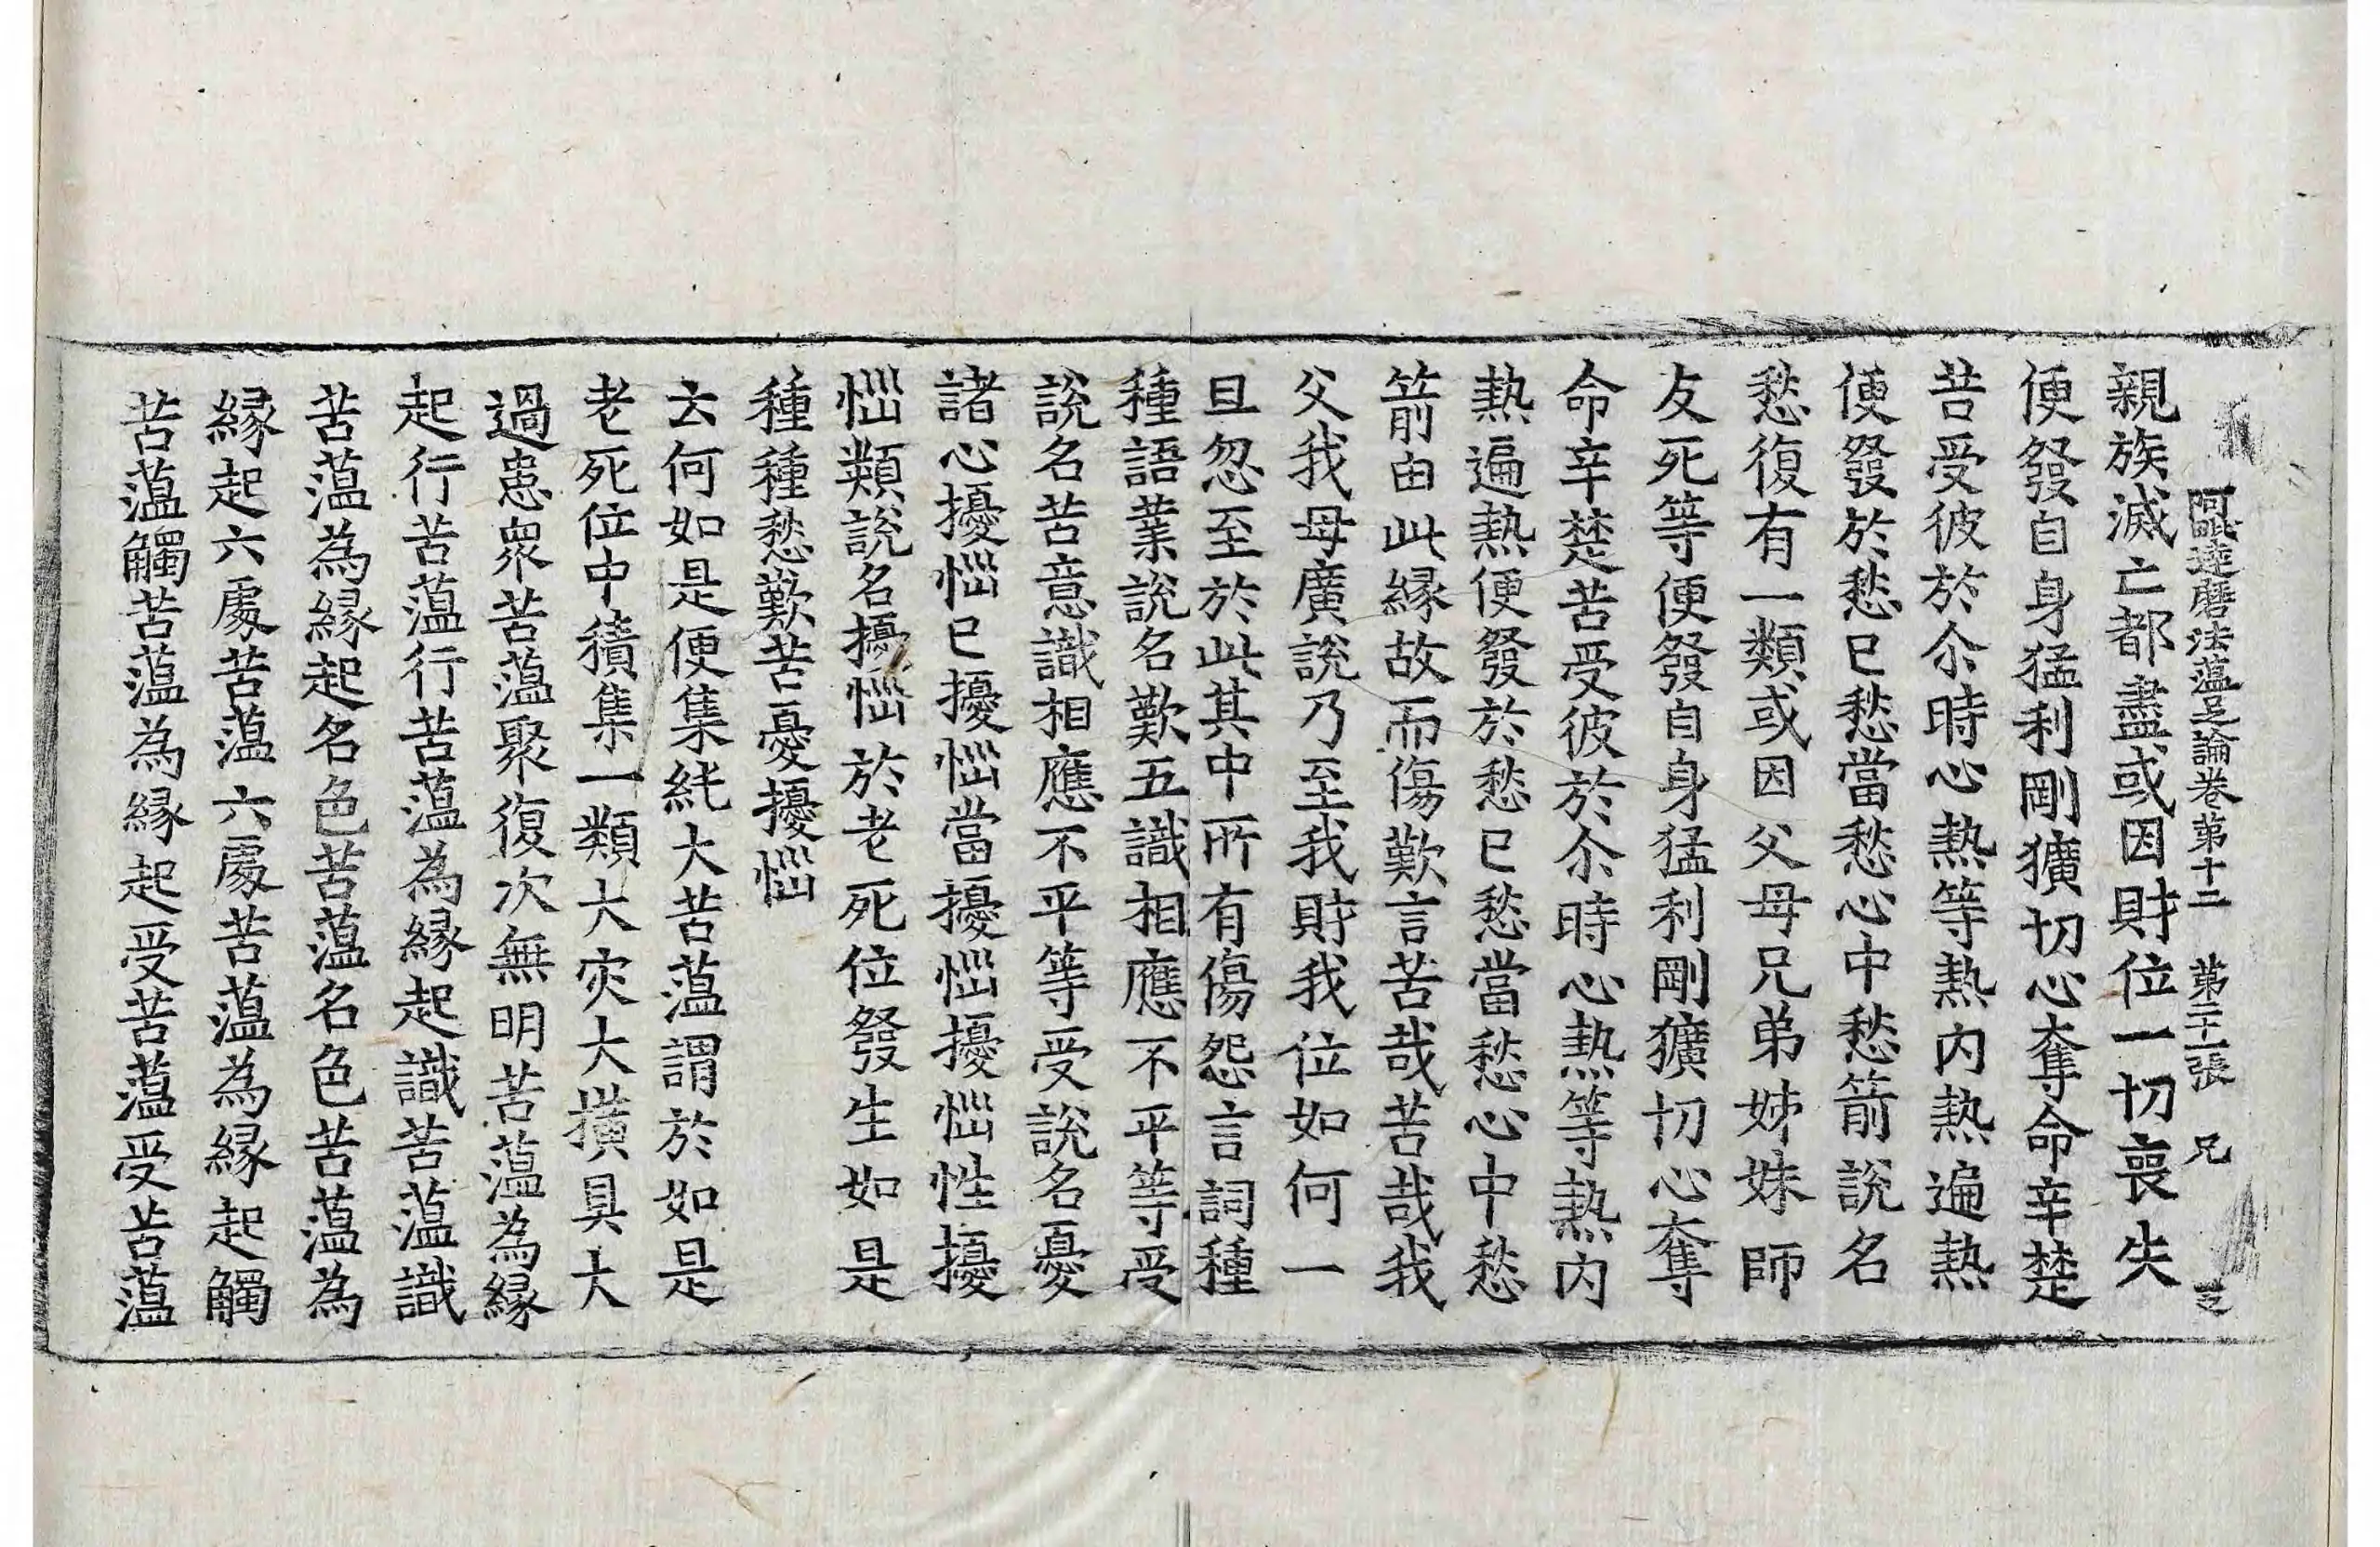 阿毗達磨法蘊足論卷第十二 第二十一張 兄
親族滅亡都盡或因財位一切喪失
便發自身猛利剛獷切心奪命辛楚
苦受彼於尒時心熱等熱內熱遍熱
便發於愁已愁當愁心中愁箭說名
愁復有一類或因父母兄弟姊妹師
友死等便發自身猛利剛獷切心奪
命辛楚苦受彼於尒時心熱等熱內
熱遍熱便發於愁已愁當愁心中愁
箭由此緣故而傷歎言苦哉苦哉我
父我母廣說乃至我財我位如何一
旦忽至於此其中所有傷怨言詞種
種語業說名歎五識相應不平等受
說名苦意識相應不平等受說名憂
諸心擾惱已擾惱當擾惱擾惱性擾
惱類說名擾惱於老死位發生如是
種種愁歎苦憂擾惱
云何如是便集純大苦蘊謂於如是
老死位中積集一類大灾大撗具大
過患衆苦蘊聚復次無明苦蘊為緣
起行苦蘊行苦蘊為緣起識苦蘊識
苦蘊為緣起名色苦蘊名色苦蘊為
緣起六處苦蘊六處苦蘊為緣起觸
苦蘊觸苦蘊為緣起受苦蘊受苦蘊